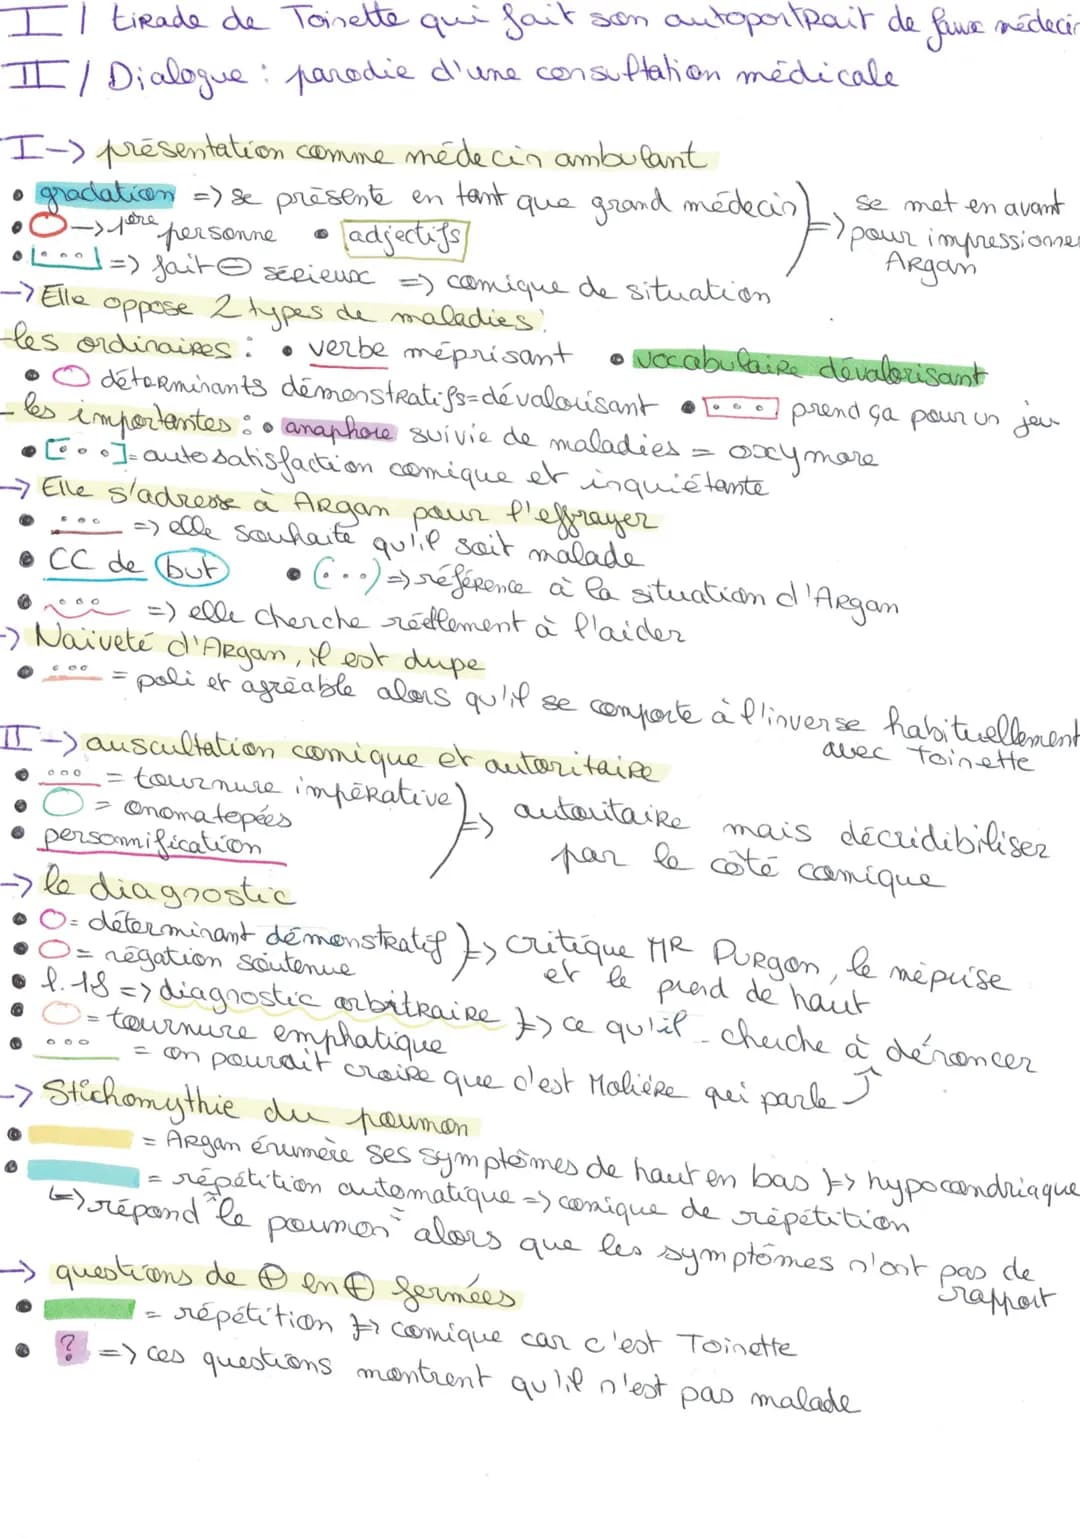 I / tirade de Toinette qui fait son autoportrait de faux médecin
II / Dialogue : parodie d'une consultation médicale
I -> présentation comme médecin ambulant
• gradation => se présente en tant que grand médecin
• O -> 1ère personne • [adjectifs]
• [...] => fait ⊖ sérieux => comique de situation
=> se met en avant pour impressionner Argan
-> Elle oppose 2 types de maladies :
- les ordinaires : • verbe méprisant • vocabulaire dévalorisant
• O déterminants démonstratifs = dévalorisant • [...] prend ça pour un jeu
- les importantes : • anaphore suivie de maladies = oxymore
• [...] = autosatisfaction comique et inquiétante
-> Elle s'adresse à Argan pour l'effrayer
• ... => elle souhaite qu'il soit malade
• CC de but • (...) => référence à la situation d'Argan
• ... => elle cherche réellement à l'aider
-> Naïveté d'Argan, il est dupe
• ... = poli et agréable alors qu'il se comporte à l'inverse habituellement avec Toinette
II -> auscultation comique et autoritaire
• ... = tournure impérative
• O = onomatopées
• personnification
=> autoritaire mais décridibiliser par le côté comique
-> le diagnostic
• O = déterminant démonstratif
• O = négation soutenue
=> critique MR Purgon, le méprise et le prend de haut
• l.18 => diagnostic arbitraire => ce qu'il cherche à dénoncer
• O = tournure emphatique
• ... = on pourrait croire que c'est Molière qui parle
-> Stichomythie du poumon
• = Argan énumère ses symptômes de haut en bas => hypocondriaque
• = répétition automatique => comique de répétition
=> répond "le poumon" alors que les symptômes n'ont pas de rapport
-> questions de ⊕ en ⊕ fermées
• = répétition => comique car c'est Toinette
• ? => ces questions montrent qu'il n'est pas malade